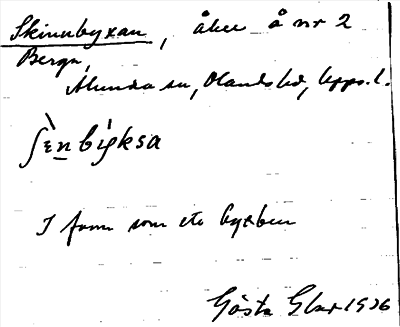 Skinnbyxan, åker å nr 2
Berga,
Alunda sn, Olands hd, Upps. l.
ʃɛ̀nby̆ksa
I form som ett byxben
Gösta Glar 1926